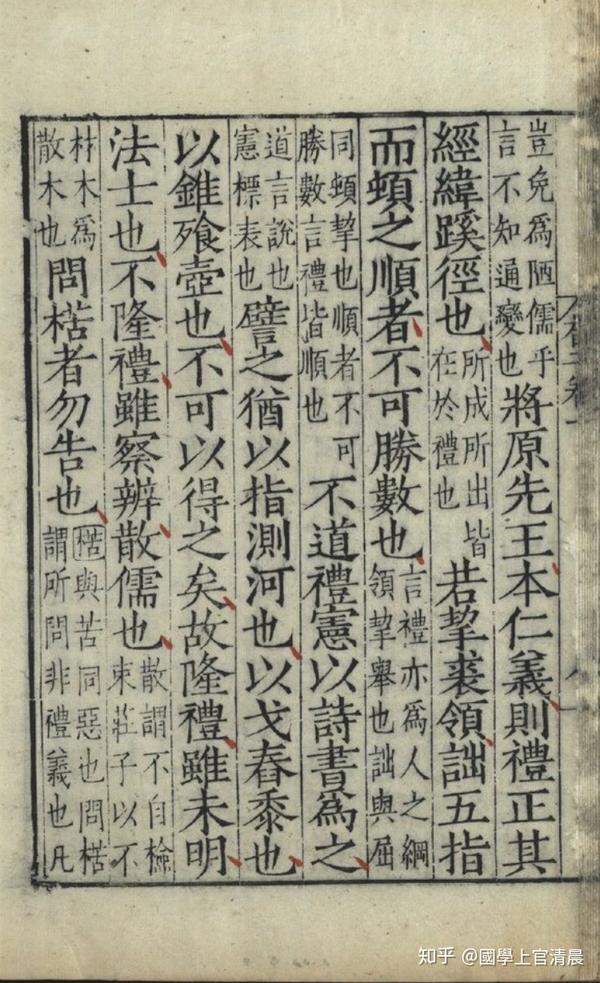 豈免爲陋儒乎言不知通變也將原先王本仁義則禮正其
經緯蹊徑也所成所出皆在於禮也若挈裘領詘五指
而頓之順者不可勝數也言禮亦爲人之綱領挈舉也詘與屈
同頓挈也順者不可勝數言禮皆順也不道禮憲以詩書爲之
道言說也憲標表也譬之猶以指測河也以戈舂黍也
以錐飱壺也不可以得之矣故隆禮雖未明
法士也不隆禮雖察辨散儒也散謂不自檢束莊子以不
材木爲散木也問楛者勿告也楛與苦同惡也問楛謂所問非禮義也凡
知乎 @國學上官清晨